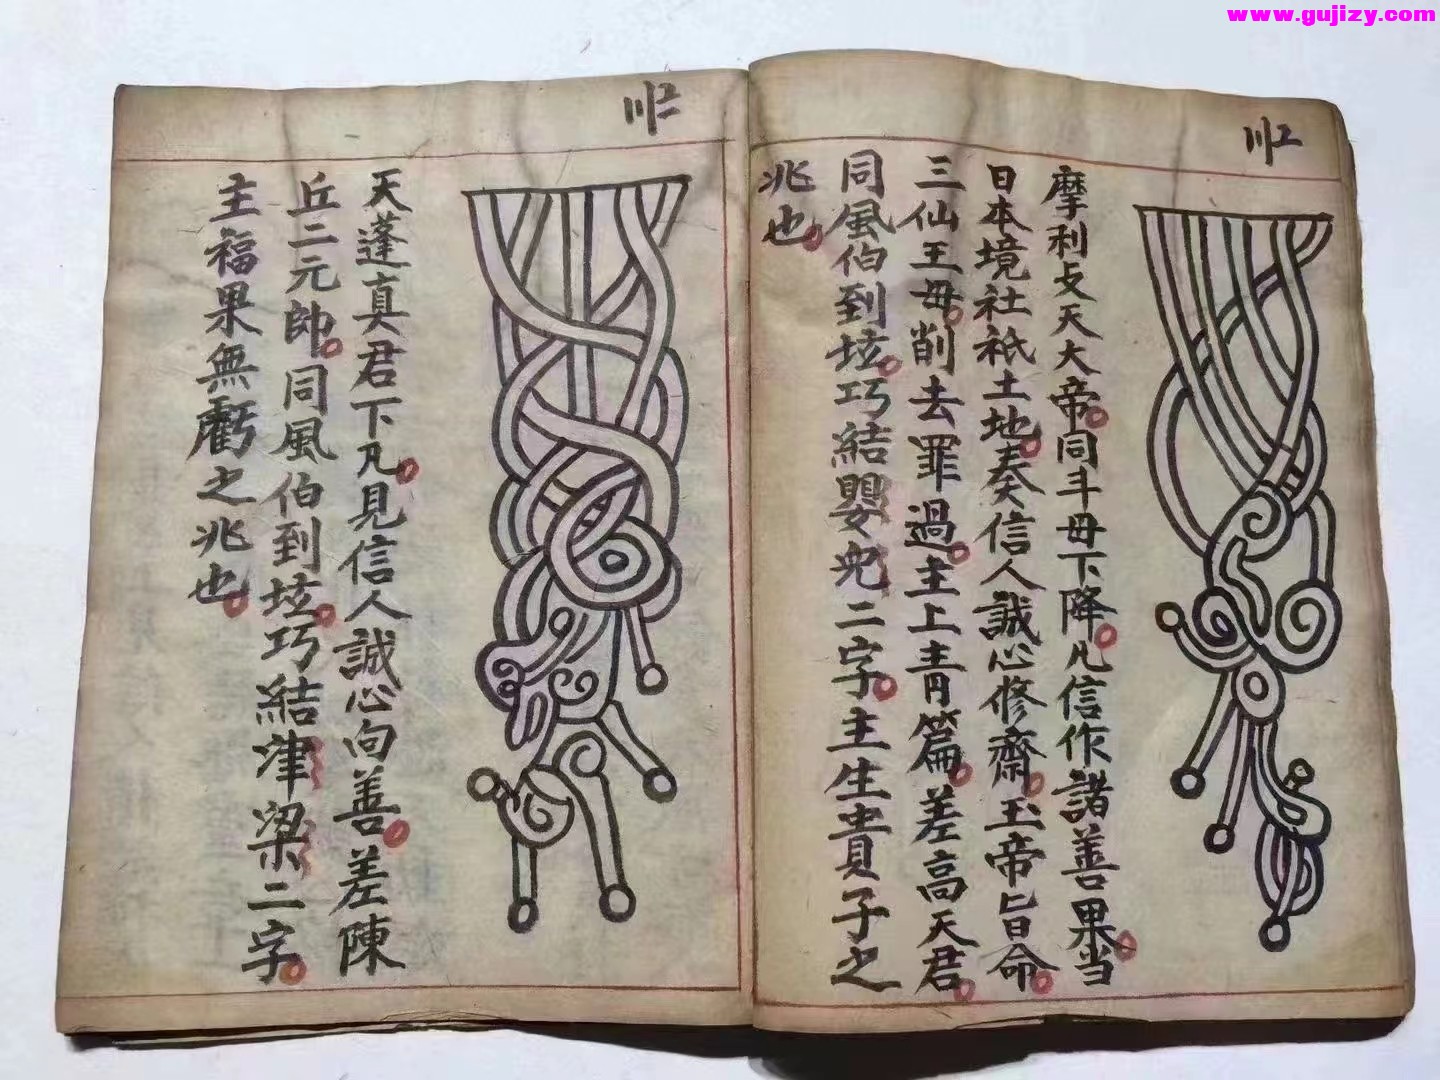 www.gujizy.com
摩利攴天大帝同斗母下降凡信作諸善果当
日本境社祇土地奏信人誠心修齋玉帝旨命
三仙王母削去罪過主上青篇差高天君
同風伯到坛巧結嬰兒二字主生貴子之
兆也
天蓬真君下凡見信人誠心向善差陳
丘二元帥同風伯到坛巧結津梁二字
主福果無虧之兆也